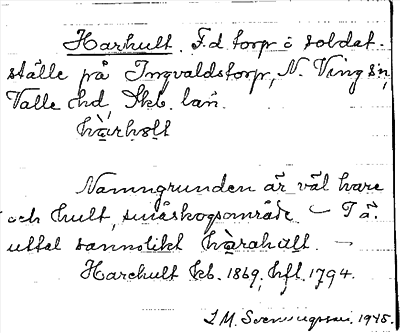 Harhult. F.d. torp o soldat-
ställe på Ingvaldstorp, N. Ving sn,
Valle hd, Skb. län.
hàrhƨlt
Namngrunden är väl hare
och hult, småskogsområde. – Då.
uttal sannolikt hàrahult. –
Harehult kb. 1869, hfl. 1794.
I. M. Svenungsson. 1945.